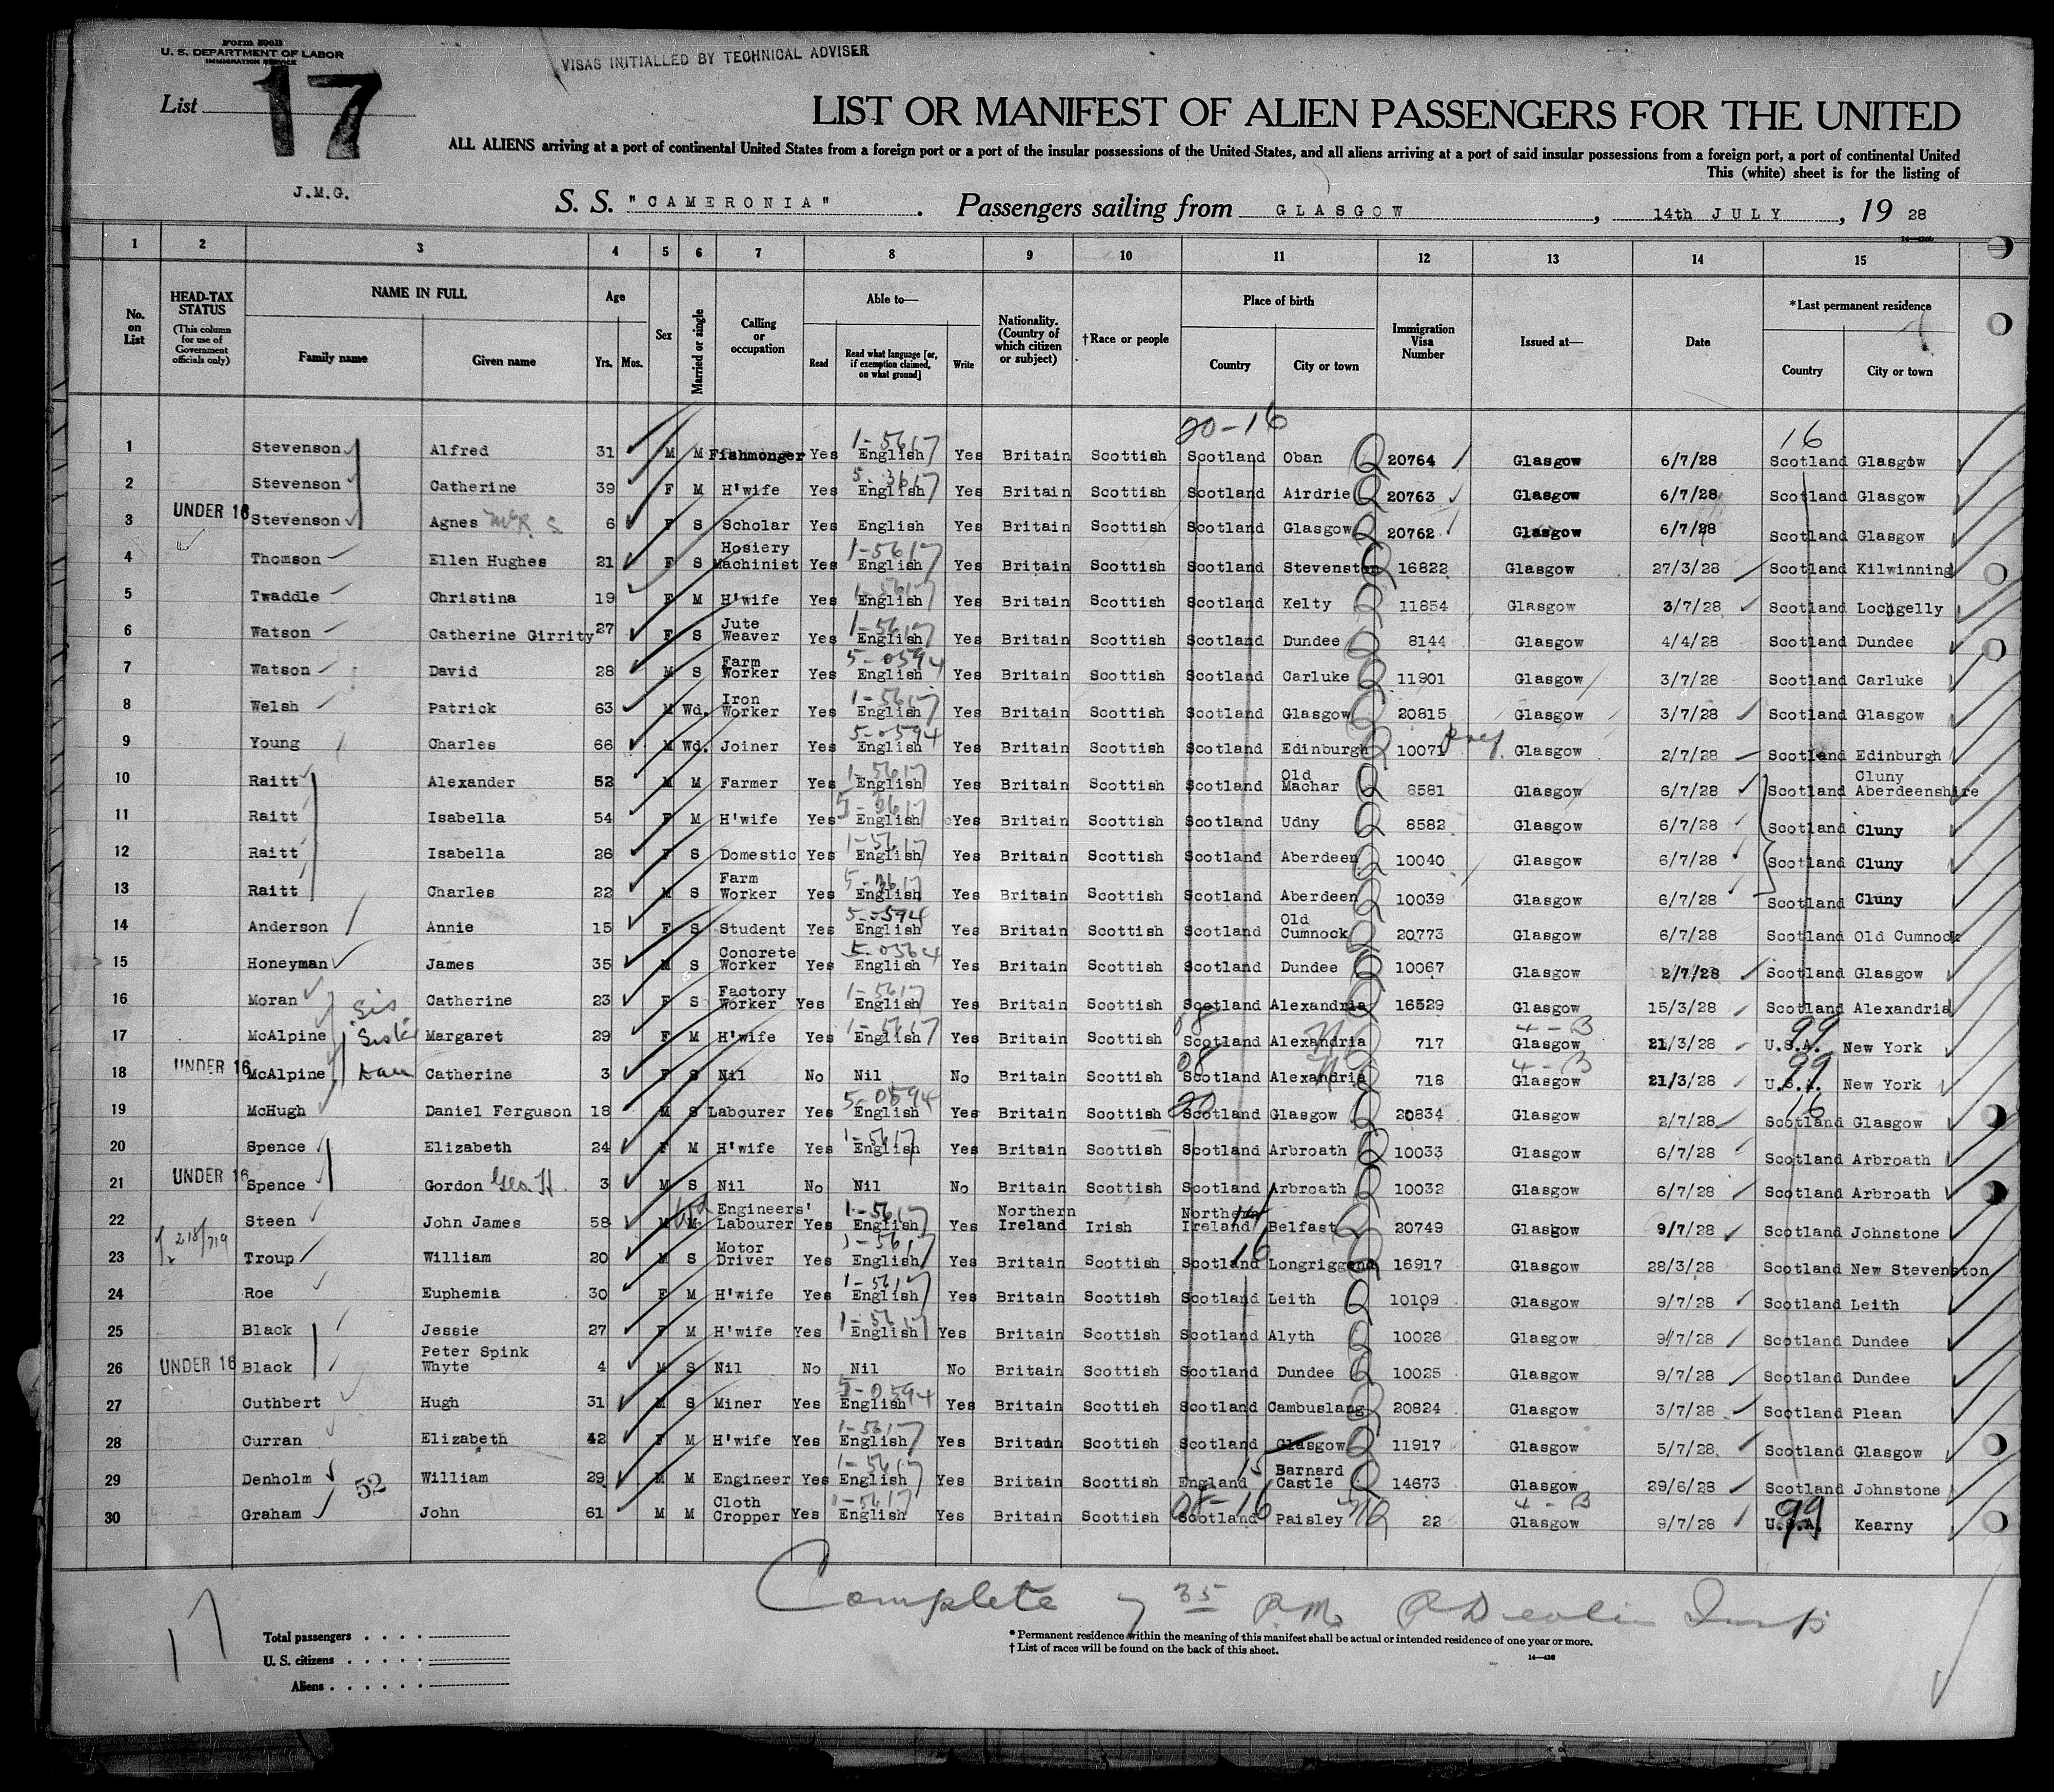 Form 500B
U. S. DEPARTMENT OF LABOR
IMMIGRATION SERVICE
VISAS INITIALLED BY TECHNICAL ADVISER
List 17
LIST OR MANIFEST OF ALIEN PASSENGERS FOR THE UNITED
ALL ALIENS arriving at a port of continental United States from a foreign port or a port of the insular possessions of the United States, and all aliens arriving at a port of said insular possessions from a foreign port, a port of continental United
This (white) sheet is for the listing of
J.M.G.
S. S. "CAMERONIA". Passengers sailing from GLASGOW, 14th JULY, 19 28
1 2 3 4 5 6 7 8 9 10 11 12 13 14 15
No. on List HEAD-TAX STATUS (This column for use of Government officials only) NAME IN FULL Family name Given name Age Yrs. Mos. Sex Married or single Calling or occupation Able to— Read Read what language [or, if exemption claimed, on what ground] Write Nationality. (Country of which citizen or subject) †Race or people Place of birth Country City or town Immigration Visa Number Issued at— Date *Last permanent residence Country City or town
20-16 16
1 Stevenson Alfred 31 M M Fishmonger Yes 1-5617 English Yes Britain Scottish Scotland Oban 20764 Glasgow 6/7/28 Scotland Glasgow
2 Stevenson Catherine 39 F M H'wife Yes 5-3617 English Yes Britain Scottish Scotland Airdrie 20763 Glasgow 6/7/28 Scotland Glasgow
3 UNDER 16 Stevenson Agnes McR S 6 F S Scholar Yes English Yes Britain Scottish Scotland Glasgow 20762 Glasgow 6/7/28 Scotland Glasgow
4 Thomson Ellen Hughes 21 F S Hosiery Machinist Yes 1-5617 English Yes Britain Scottish Scotland Stevenston 16822 Glasgow 27/3/28 Scotland Kilwinning
5 Twaddle Christina 19 F M H'wife Yes 1-5617 English Yes Britain Scottish Scotland Kelty 11854 Glasgow 3/7/28 Scotland Lochgelly
6 Watson Catherine Girrity 27 F S Jute Weaver Yes 1-5617 English Yes Britain Scottish Scotland Dundee 8144 Glasgow 4/4/28 Scotland Dundee
7 Watson David 28 M S Farm Worker Yes 5-0594 English Yes Britain Scottish Scotland Carluke 11901 Glasgow 3/7/28 Scotland Carluke
8 Welsh Patrick 63 M Wd. Iron Worker Yes 1-5617 English Yes Britain Scottish Scotland Glasgow 20815 Glasgow 3/7/28 Scotland Glasgow
9 Young Charles 66 M Wd. Joiner Yes 5-0594 English Yes Britain Scottish Scotland Edinburgh 10071 Glasgow 2/7/28 Scotland Edinburgh
10 Raitt Alexander 52 M M Farmer Yes 1-5617 English Yes Britain Scottish Scotland Old Machar 8581 Glasgow 6/7/28 Scotland Cluny Aberdeenshire
11 Raitt Isabella 54 F M H'wife Yes 5-3617 English Yes Britain Scottish Scotland Udny 8582 Glasgow 6/7/28 Scotland Cluny
12 Raitt Isabella 26 F S Domestic Yes 1-5617 English Yes Britain Scottish Scotland Aberdeen 10040 Glasgow 6/7/28 Scotland Cluny
13 Raitt Charles 22 M S Farm Worker Yes 5-3617 English Yes Britain Scottish Scotland Aberdeen 10039 Glasgow 6/7/28 Scotland Cluny
14 Anderson Annie 15 F S Student Yes 5-0594 English Yes Britain Scottish Scotland Old Cumnock 20773 Glasgow 6/7/28 Scotland Old Cumnock
15 Honeyman James 35 M S Concrete Worker Yes 5-0364 English Yes Britain Scottish Scotland Dundee 10067 Glasgow 2/7/28 Scotland Glasgow
16 Moran Sis Catherine 23 F S Factory Worker Yes 1-5617 English Yes Britain Scottish Scotland Alexandria 16529 Glasgow 15/3/28 Scotland Alexandria
17 McAlpine Margaret 29 F M H'wife Yes 1-5617 English Yes Britain Scottish Scotland Alexandria 717 4-B Glasgow 21/3/28 99 U.S.A. New York
18 UNDER 16 McAlpine Dau Catherine 3 F S Nil No Nil No Britain Scottish 08 Scotland Alexandria 718 4-B Glasgow 21/3/28 99 U.S.A. New York
19 McHugh Daniel Ferguson 18 M S Labourer Yes 5-0594 English Yes Britain Scottish 20 Scotland Glasgow 20834 Glasgow 2/7/28 16 Scotland Glasgow
20 Spence Elizabeth 24 F M H'wife Yes 1-5617 English Yes Britain Scottish Scotland Arbroath 10033 Glasgow 6/7/28 Scotland Arbroath
21 UNDER 16 Spence Gordon Geo. H. 3 M S Nil No Nil No Britain Scottish Scotland Arbroath 10032 Glasgow 6/7/28 Scotland Arbroath
22 Steen John James 58 M M Wd Engineers' Labourer Yes 1-5617 English Yes Northern Ireland Irish Northern Ireland Belfast 20749 Glasgow 9/7/28 Scotland Johnstone
23 Troup William 20 M S Motor Driver Yes 1-5617 English Yes Britain Scottish 16 Scotland Longriggend 16917 Glasgow 28/3/28 Scotland New Stevenston
24 Roe Euphemia 30 F M H'wife Yes 1-5617 English Yes Britain Scottish Scotland Leith 10109 Glasgow 9/7/28 Scotland Leith
25 Black Jessie 27 F M H'wife Yes 1-5617 English Yes Britain Scottish Scotland Alyth 10026 Glasgow 9/7/28 Scotland Dundee
26 UNDER 16 Black Peter Spink Whyte 4 M S Nil No Nil No Britain Scottish Scotland Dundee 10025 Glasgow 9/7/28 Scotland Dundee
27 Cuthbert Hugh 31 M S Miner Yes 5-0594 English Yes Britain Scottish Scotland Cambuslang 20824 Glasgow 3/7/28 Scotland Plean
28 Curran Elizabeth 42 F M H'wife Yes 1-5617 English Yes Britain Scottish Scotland Glasgow 11917 Glasgow 5/7/28 Scotland Glasgow
29 Denholm 52 William 29 M M Engineer Yes 1-5617 English Yes Britain Scottish England 15 Barnard Castle 14673 Glasgow 29/6/28 Scotland Johnstone
30 Graham John 61 M M Cloth Cropper Yes 1-5617 English Yes Britain Scottish 08-16 Scotland Paisley 22 4-B Glasgow 9/7/28 99 U.S.A. Kearny
Complete 7 35 P.M.
17
Total passengers
U. S. citizens
Aliens
* Permanent residence within the meaning of this manifest shall be actual or intended residence of one year or more.
† List of races will be found on the back of this sheet.
14—430